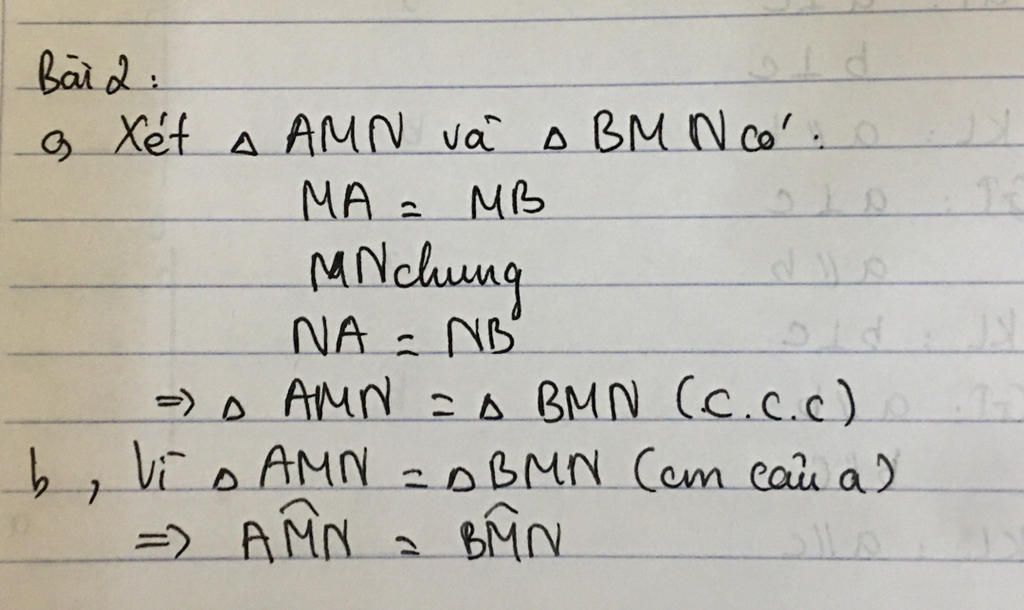 Bài 2 :
a, Xét △ AMN và △ BMN có :
MA = MB
MN chung
NA = NB
⇒ △ AMN = △ BMN (c.c.c)
b, Vì △ AMN = △ BMN (cm câu a)
⇒ AM̂N = BM̂N